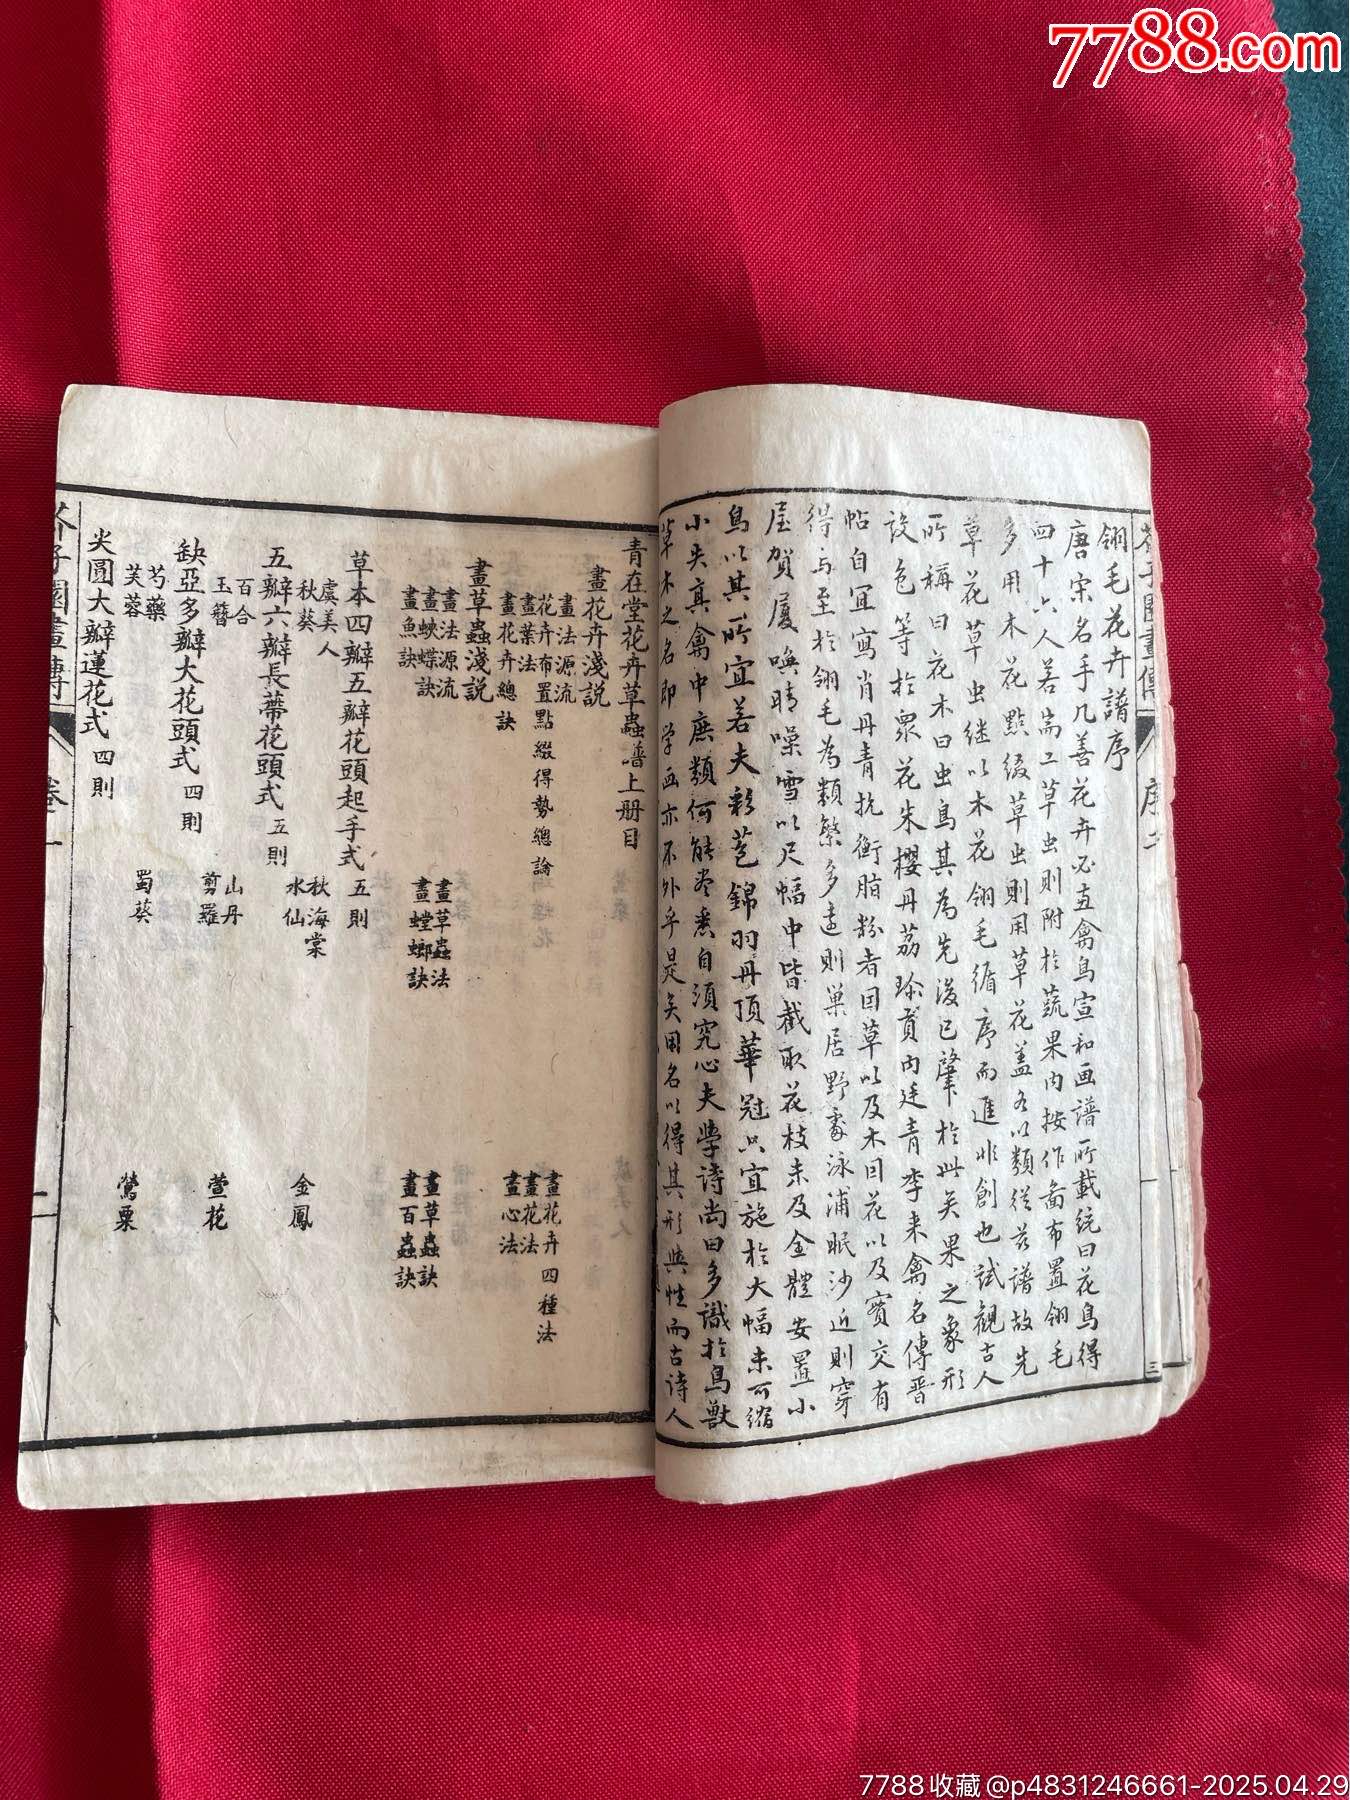 7788.com
芥子園畫傳 序二 三
翎毛花卉譜序
唐宋名手凡善花卉必工禽鳥宣和画譜所載統曰花鳥得
四十六人若耑工草虫則附於蔬果內按作畫布置翎毛
多用木花點綴草虫則用草花盖各以類從茲譜故先
草花草虫继以木花翎毛循序而進非創也試觀古人
所稱曰花木曰虫鳥其為先後已肇於此矣果之象形
設色等於眾花朱櫻丹荔珍貢内廷青李来禽名傳晋
帖自宜寫肖丹青抗衡脂粉者因草以及木因花以及實交有
得与至於翎毛為類繁多遠則巢居野處泳浦眠沙近則穿
屋賀厦喚晴噪雪以尺幅中皆截取花枝未及全體安置小
鳥以其所宜若夫彩苞錦羽丹頂華冠只宜施於大幅未可縮
小失真禽中庶類何能尽悉自須究心夫學詩尚曰多識於鳥獸
草木之名即学画亦不外乎是矣用名以得其形與性而古詩人
青在堂花卉草蟲譜上册目
畫花卉淺説
畫法源流 畫花卉四種法
花卉布置點綴得勢總論
畫葉法 畫花法
畫花卉總訣 畫心法
畫草蟲淺説
畫法源流 畫草蟲法 畫草蟲訣
畫蛺蝶訣 畫螳螂訣 畫百蟲訣
畫魚訣
草本四瓣五瓣花頭起手式 五則
虞美人 秋海棠 金鳳
秋葵 水仙
五瓣六瓣長蒂花頭式 五則
百合 山丹 萱花
玉簪 剪羅
缺亞多瓣大花頭式 四則
芍藥 蜀葵 鶯粟
芙蓉
尖圓大瓣蓮花式 四則
芥子園畫傳 卷一 一
7788收藏@p4831246661-2025.04.29